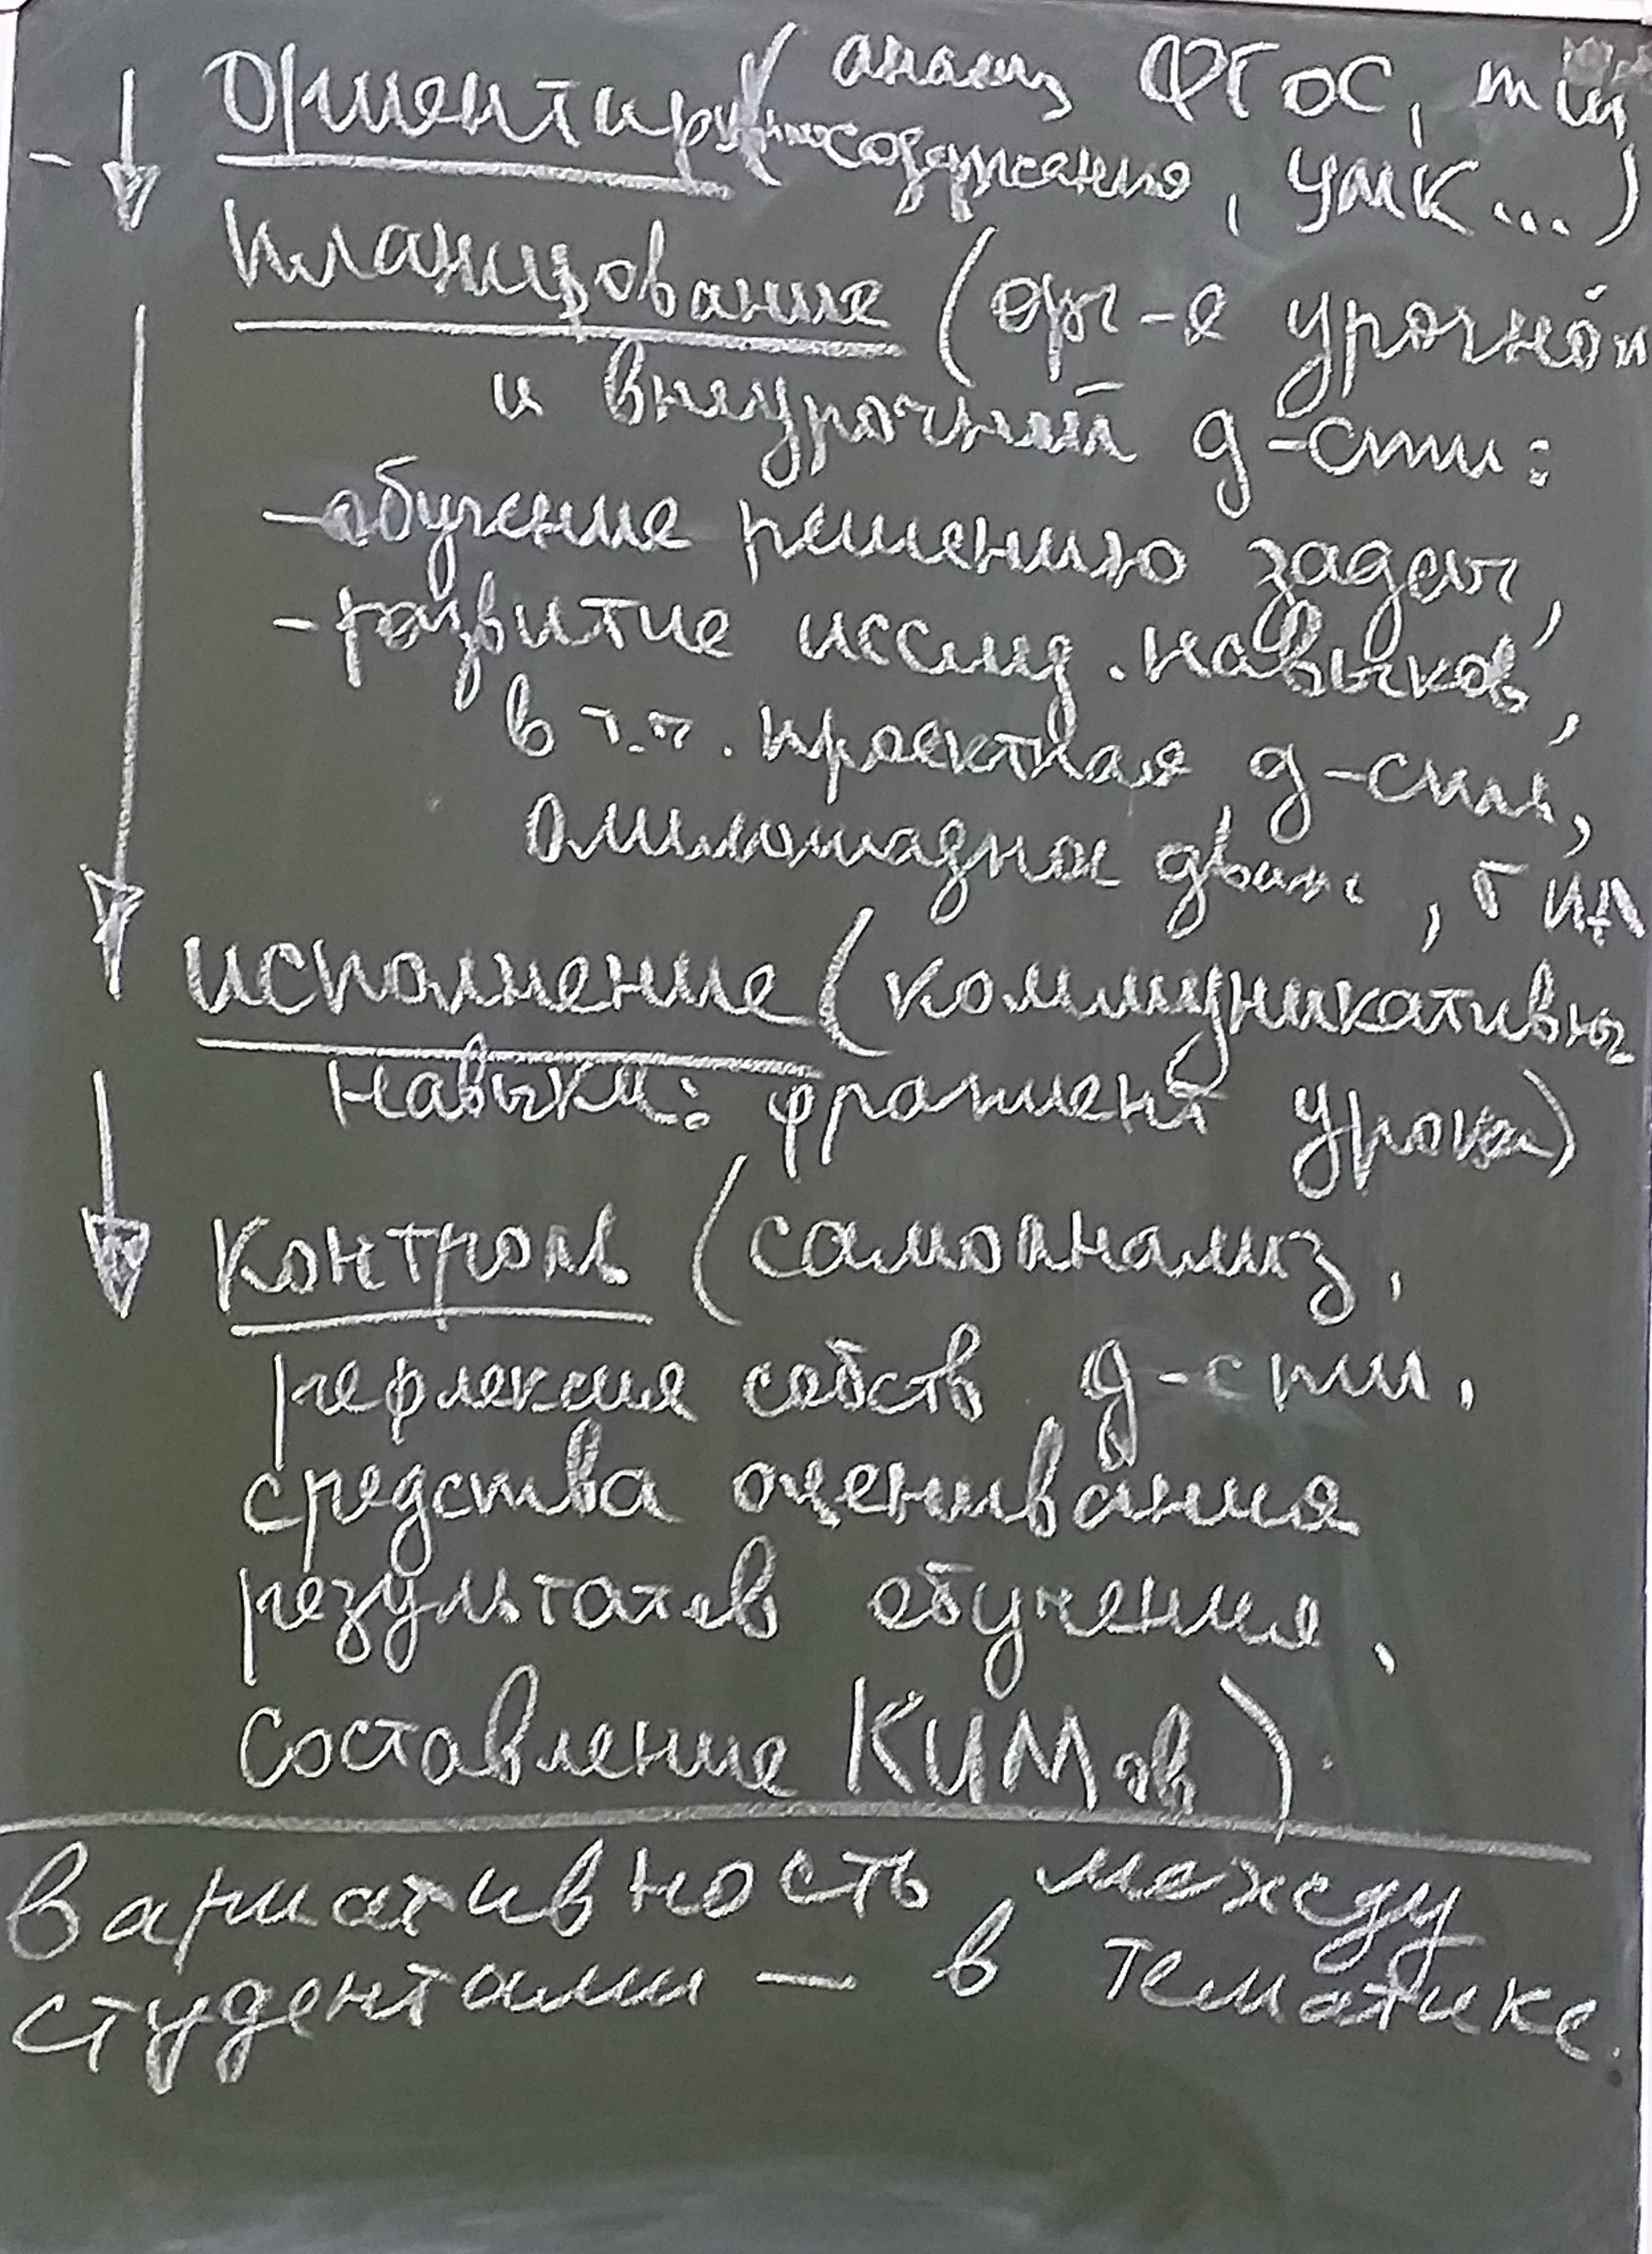 Ориентир (анализ ФГОС,
содержания, УМК...)
Планирование (орг-я урочной
и внеурочной д-сти:
- обучение решению задач,
- развитие исслед. навыков,
в т.ч. проектная д-сть,
олимпиадное движ., ГИА
исполнение (коммуникативны
навыки: фрагмент урока)
Контроль (самоанализ,
рефлексия собств д-сти,
средства оценивания
результатов обучения,
составление КИМов).
Вариативность между
студентами — в тематике.